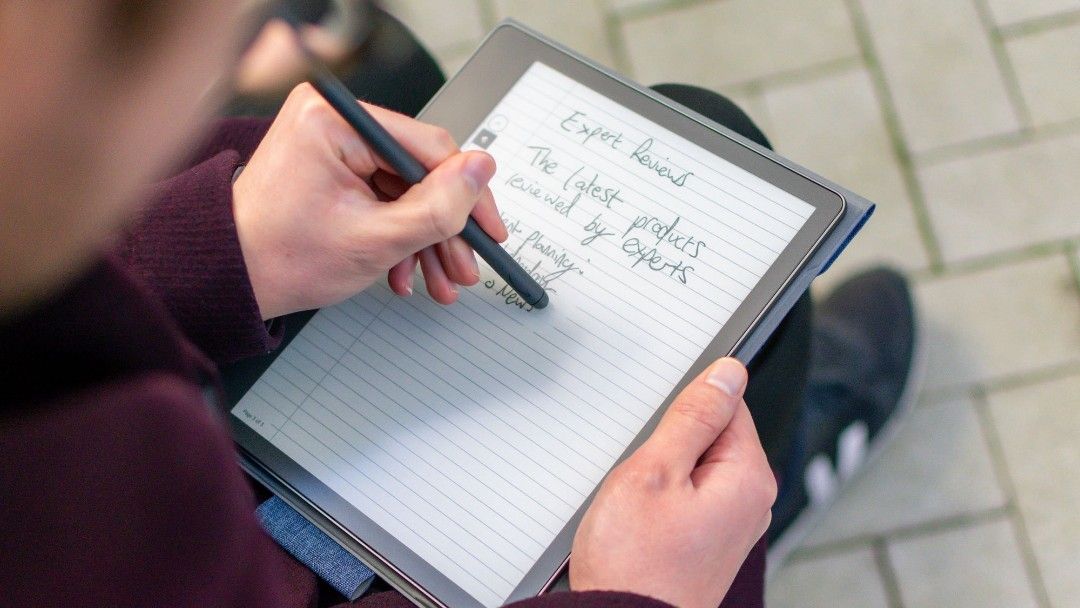 Expert Reviews
The latest products
reviewed by experts
planning:
News
Page 1 of 1